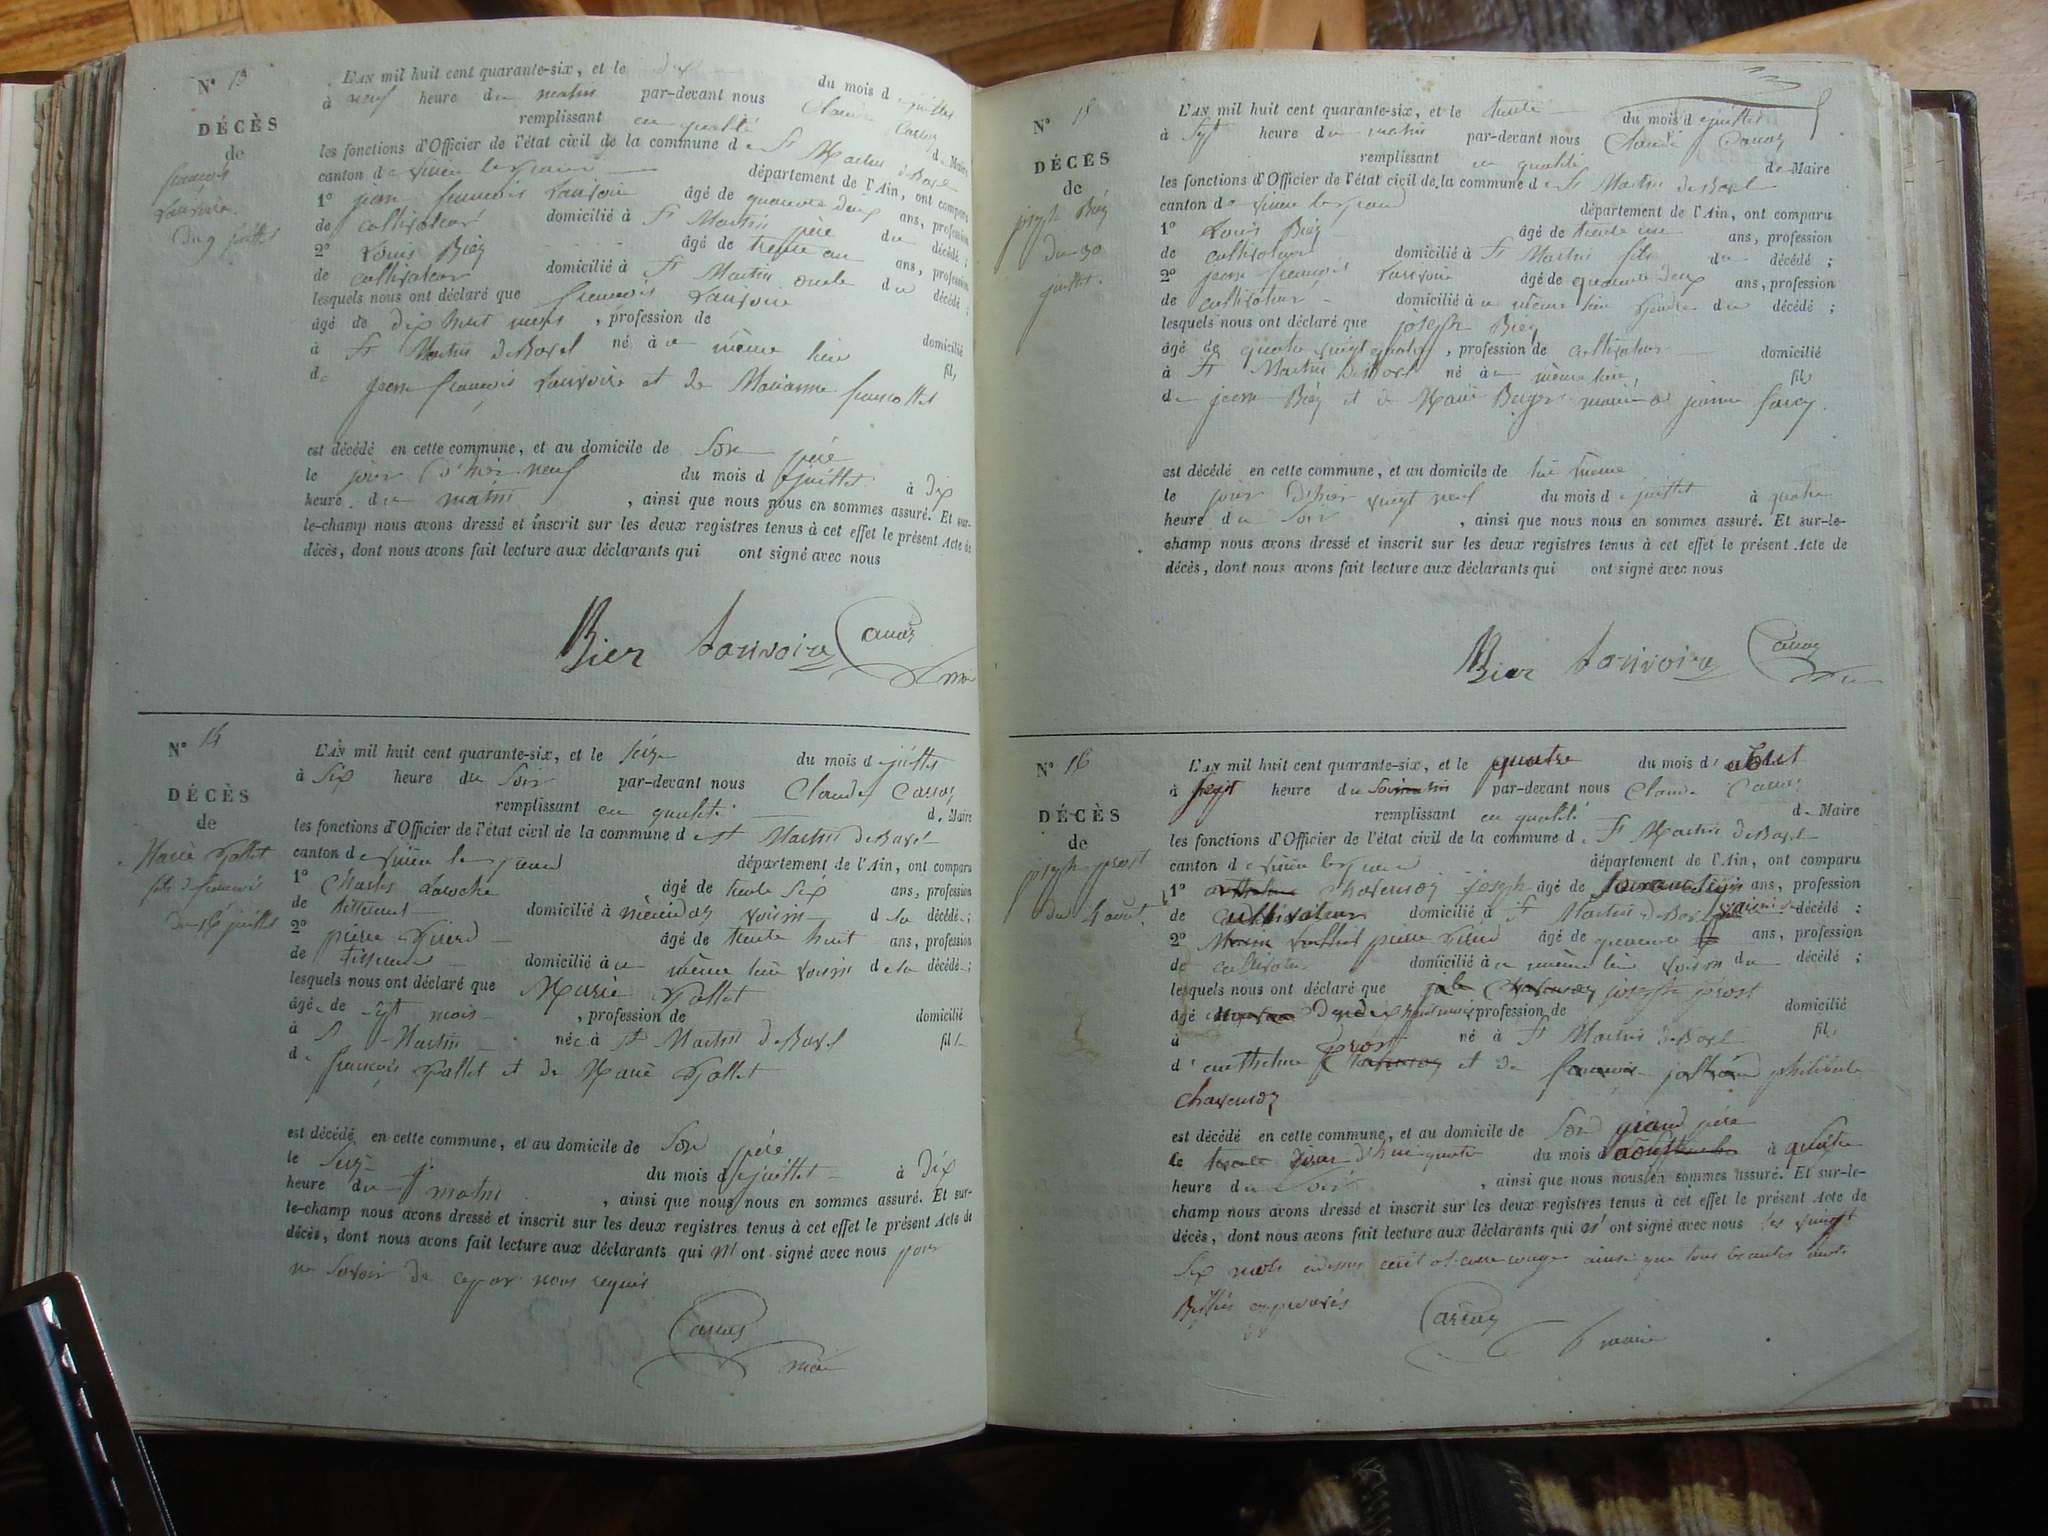 N° 13
DÉCÈS
de
françois
Lauvoire
du 9 juillet
L'AN mil huit cent quarante-six, et le dix du mois de juillet
à neuf heure du matin par-devant nous Claude Carraz
remplissant en qualité de Maire
les fonctions d'Officier de l'état civil de la commune de St Martin de Bavel
canton de virieu le grand département de l'Ain, ont comparu
1° jean françois Lauvoire âgé de quarante deux ans, profession
de cultivateur domicilié à St Martin père du décédé ;
2° Louis Biez âgé de trente un ans, profession
de cultivateur domicilié à St Martin oncle du décédé ;
lesquels nous ont déclaré que françois Lauvoire
âgé de dix huit mois , profession de domicilié
à St Martin de Bavel né à u même lieu fils
de jean françois Lauvoire et de Marianne francottet
est décédé en cette commune, et au domicile de Son père
le jour d'hier neuf du mois de juillet à dix
heure du matin , ainsi que nous nous en sommes assuré. Et sur-
le-champ nous avons dressé et inscrit sur les deux registres tenus à cet effet le présent Acte de
décès, dont nous avons fait lecture aux déclarants qui ont signé avec nous
Bier Lauvoire Carraz
maire
N° 14
DÉCÈS
de
Marie Pollet
fille de françois
du 16 juillet
L'AN mil huit cent quarante-six, et le seize du mois de juillet
à Six heure du Soir par-devant nous Claude Carraz
remplissant en qualité de Maire
les fonctions d'Officier de l'état civil de la commune de St Martin de Bavel
canton de virieu le grand département de l'Ain, ont comparu
1° Charles Laroche âgé de trente Six ans, profession
de tisserand domicilié à voisin de la décédée ;
2° pierre âgé de trente huit ans, profession
de tisserand domicilié à u même lieu voisin de la décédée ;
lesquels nous ont déclaré que Marie Pollet
âgée de Sept mois , profession de domicilié
à St Martin née à St Martin de Bavel fille
de françois Pallet et de Marie Pollet
est décédé en cette commune, et au domicile de Son père
le Seize du mois de juillet à Dix
heure du matin , ainsi que nous nous en sommes assuré. Et sur-
le-champ nous avons dressé et inscrit sur les deux registres tenus à cet effet le présent Acte de
décès, dont nous avons fait lecture aux déclarants qui n'ont signé avec nous pour
ne Savoir de ce par nous requis
Carraz
maire
N° 15
DÉCÈS
de
joseph Biez
du 30
juillet.
L'AN mil huit cent quarante-six, et le trente du mois de juillet
à Sept heure du matin par-devant nous Claude Carraz
remplissant en qualité de Maire
les fonctions d'Officier de l'état civil de la commune de St Martin de Bavel
canton de virieu le grand département de l'Ain, ont comparu
1° Louis Biez âgé de trente un ans, profession
de cultivateur domicilié à St Martin fils du décédé ;
2° jean françois Lauvoire âgé de quarante deux ans, profession
de cultivateur domicilié à u même lieu gendre du décédé ;
lesquels nous ont déclaré que joseph Biez
âgé de quatre vingt quatre , profession de cultivateur domicilié
à St Martin de Bavel né à u même lieu, fils
de jean Biez et de Marie Berger marié à
est décédé en cette commune, et au domicile de lui même
le jour d'hier vingt neuf du mois de juillet à quatre
heure du Soir , ainsi que nous nous en sommes assuré. Et sur-le-
champ nous avons dressé et inscrit sur les deux registres tenus à cet effet le présent Acte de
décès, dont nous avons fait lecture aux déclarants qui ont signé avec nous
Bier Lauvoire Carraz
N° 16
DÉCÈS
de
joseph prost
du 4 aout
L'AN mil huit cent quarante-six, et le quatre du mois d'
à Sept heure du Soir par-devant nous Claude Carraz
remplissant en qualité de Maire
les fonctions d'Officier de l'état civil de la commune de St Martin de Bavel
canton de virieu le grand département de l'Ain, ont comparu
1° joseph âgé de ans, profession
de cultivateur domicilié à St Martin de Bavel décédé ;
2° pierre âgé de quarante ans, profession
de cultivateur domicilié à u même lieu voisin du décédé ;
lesquels nous ont déclaré que joseph prost
âgé profession de domicilié
à né à St Martin de Bavel fils
d'anthelme prost et de philiberte
Chavensoz
est décédé en cette commune, et au domicile de Son grand père
le quatre du mois d' à quatre
heure du Soir , ainsi que nous nous en sommes assuré. Et sur-le-
champ nous avons dressé et inscrit sur les deux registres tenus à cet effet le présent Acte de
décès, dont nous avons fait lecture aux déclarants qui ont signé avec nous les vingt
Six mots ainsi que tous les autres mots
approuvés
Carraz
maire